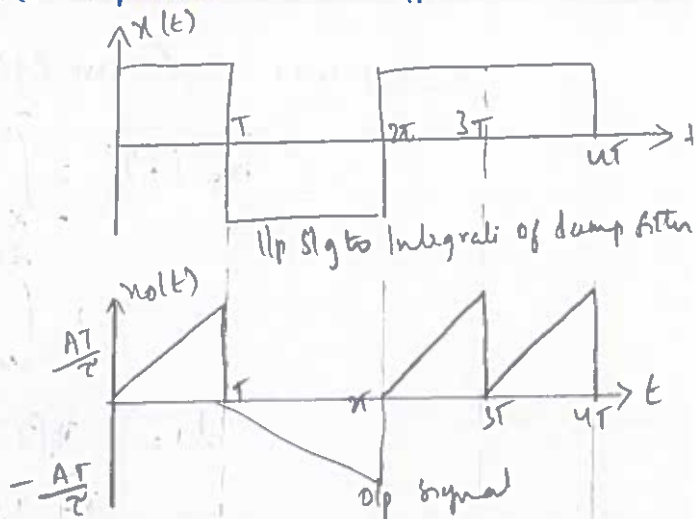 x(t)
T 2T 3T 4T t
I/p Sig to Integrate of dump filter
x0(t)
AT/τ
T 2T 3T 4T t
- AT/τ
O/p Signal